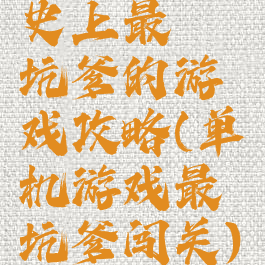 史上最
坑爹的游
戏攻略(单
机游戏最
坑爹闯关)